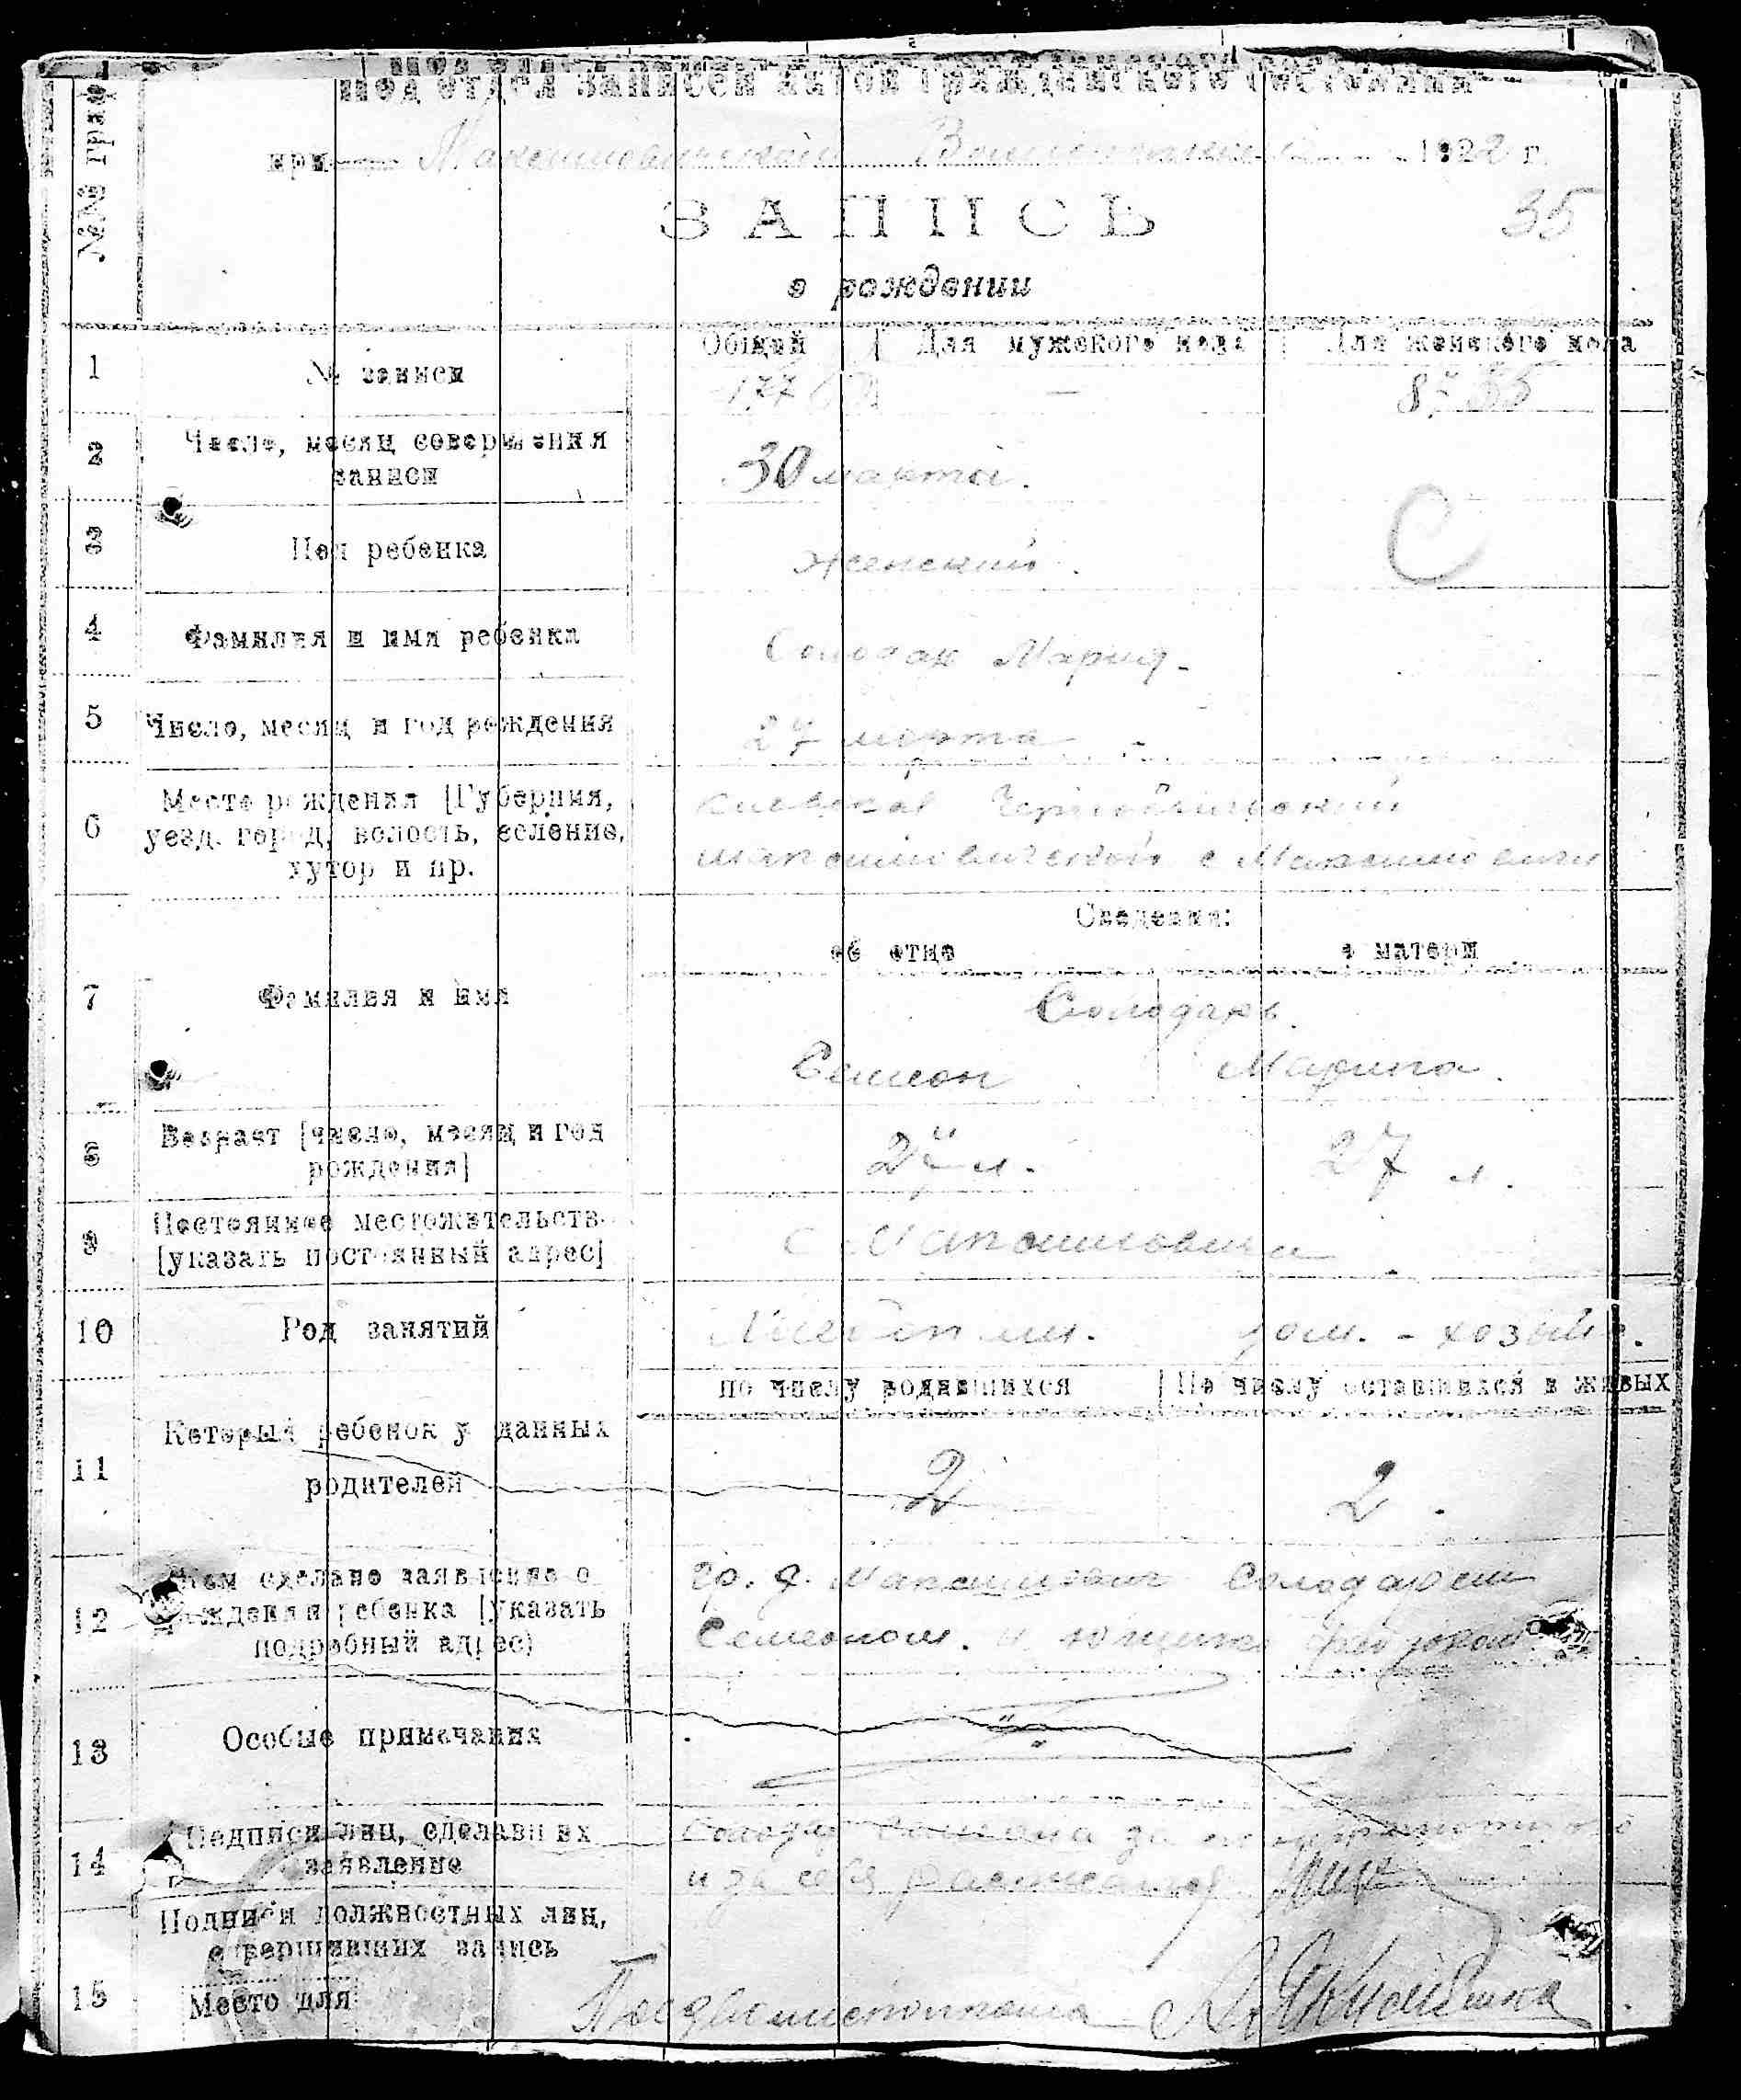 Подотдел записей актов гражданского состояния
№№ граф
при Максимовичской 1922 г.
35
ЗАПИСЬ
о рождении
Общий | Для мужского пола | Для женского пола
1 № записи 177 — 85
2 Число, месяц совершения
записи 30 марта.
3 Пол ребенка женский.
С
4 Фамилия и имя ребенка Солодар Мария
5 Число, месяц и год рождения 27 марта
6 Место рождения [Губерния,
уезд, город, волость, селение,
хутор и пр.
Киевская Чернобыльский
Максимовичской с Максимовичи
Сведения:
об отце о матери
7 Фамилия и имя Солодарь
Семеон Марина.
8 Возраст [число, месяц и год
рождения] л. 27 л.
9 Постоянное местожительств
[указать постоянный адрес] с Максимовичи
10 Род занятий дом. - хозяйка.
по числу родившихся | По числу оставшихся в живых
11 Который ребенок у данных
родителей 2 2.
12 Кем сделано заявление о
рождении ребенка [указать
подробный адрес)
гр. с. Максимович Солодарем
Семеоном. и
13 Особые примечания
14 Подписи лиц, сделавших
заявление
Солодар за
и за себя расписался
Подписи должностных лиц,
совершивших запись
15 Место для